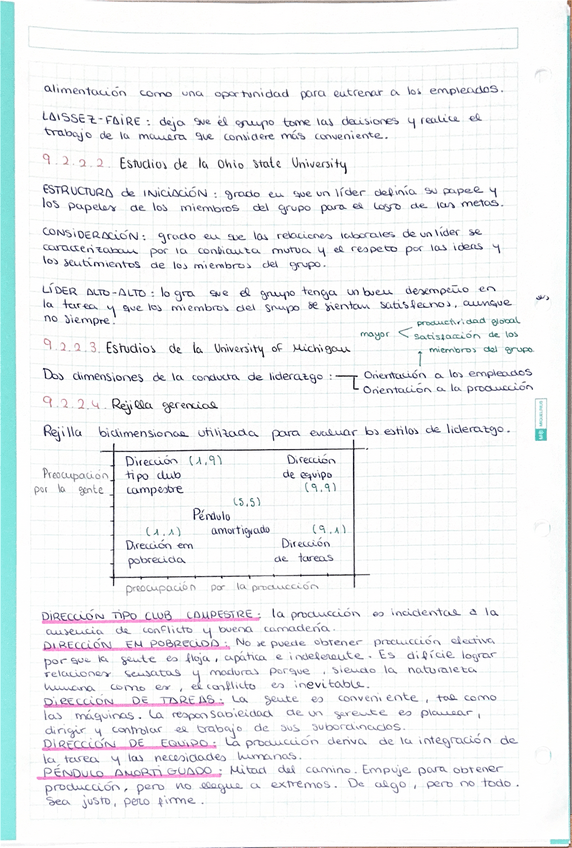 alimentación como una oportunidad para entrenar a los empleados.
LAISSEZ-FAIRE: deja que el grupo tome las decisiones y realice el
trabajo de la manera que considere más conveniente.
9.2.2.2. Estudios de la Ohio State University
ESTRUCTURA de INICIACIÓN: grado en que un líder definía su papel y
los papeles de los miembros del grupo para el logro de las metas.
CONSIDERACIÓN: grado en que las relaciones laborales de un líder se
caracterizaban por la confianza mutua y el respeto por las ideas y
los sentimientos de los miembros del grupo.
LÍDER ALTO-ALTO: logra que el grupo tenga un buen desempeño en
la tarea y que los miembros del grupo se sientan satisfechos, aunque
no siempre.
mayor < productividad global
satisfacción de los
miembros del grupo
9.2.2.3. Estudios de la University of Michigan
Dos dimensiones de la conducta de liderazgo: Orientación a los empleados
Orientación a la producción
9.2.2.4. Rejilla gerencial
Rejilla bidimensional utilizada para evaluar los estilos de liderazgo.
Preocupación
por la gente
Dirección (1,9)
tipo club
campestre
Dirección
de equipo
(9,9)
(5,5)
Péndulo
amortiguado
(1,1)
Dirección em
pobrecida
(9,1)
Dirección
de tareas
preocupación por la producción
DIRECCIÓN TIPO CLUB CAMPESTRE: la producción es incidental a la
ausencia de conflicto y buena camadería.
DIRECCIÓN EMPOBRECIDA: No se puede obtener producción efectiva
porque la gente es floja, apática e indeferente. Es difícil lograr
relaciones sensatas y maduras porque, siendo la naturaleza
humana como es, el conflicto es inevitable.
DIRECCIÓN DE TAREAS: La gente es conveniente, tal como
las máquinas. La responsabilidad de un gerente es planear,
dirigir y controlar el trabajo de sus subordinados.
DIRECCIÓN DE EQUIPO: La producción deriva de la integración de
la tarea y las necesidades humanas.
PÉNDULO AMORTIGUADO: Mitad del camino. Empuje para obtener
producción, pero no llegue a extremos. De algo, pero no todo.
Sea justo, pero firme.